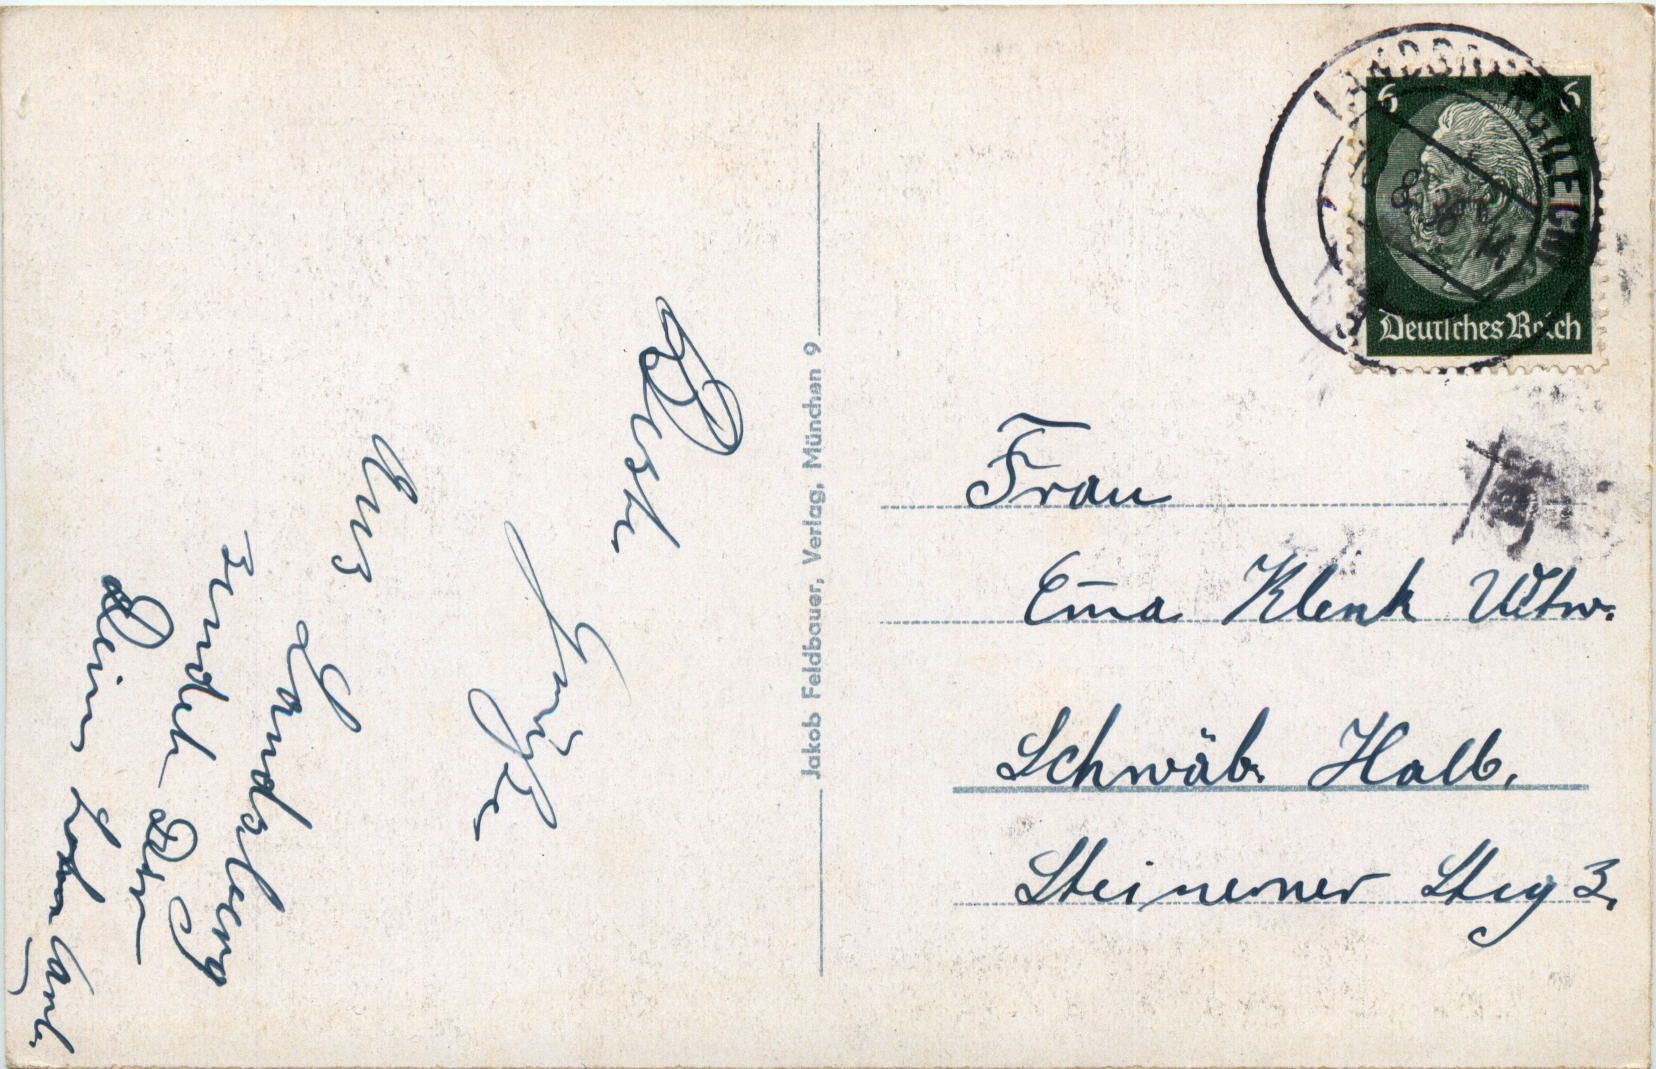 Beste
Grüße
aus
Landsberg
sendet Dir
Dein Sohn
Jakob Feldbauer, Verlag, München 9
6 6
Deutsches Reich
Frau
Em̄a Klenk Wtw.
Schwäb. Hall.
Steinerner Steg 3.